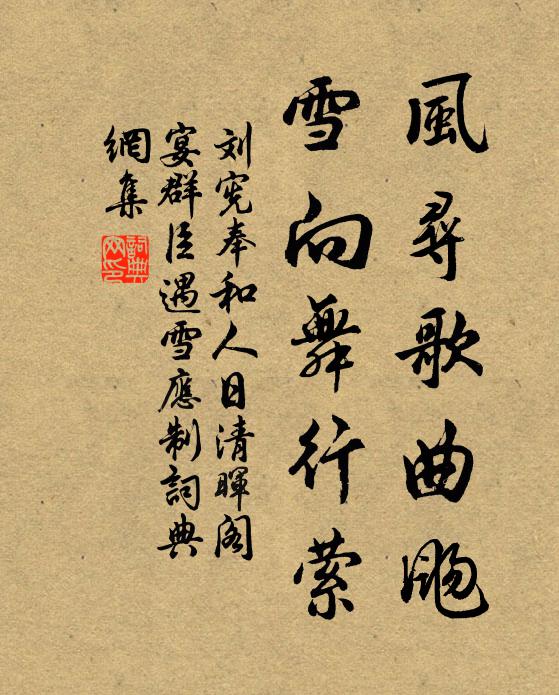 風尋歌曲颺
雪向舞行縈
刘宪奉和人日清暉阁
宴群臣遇雪應制詞典
網集
詞典网印